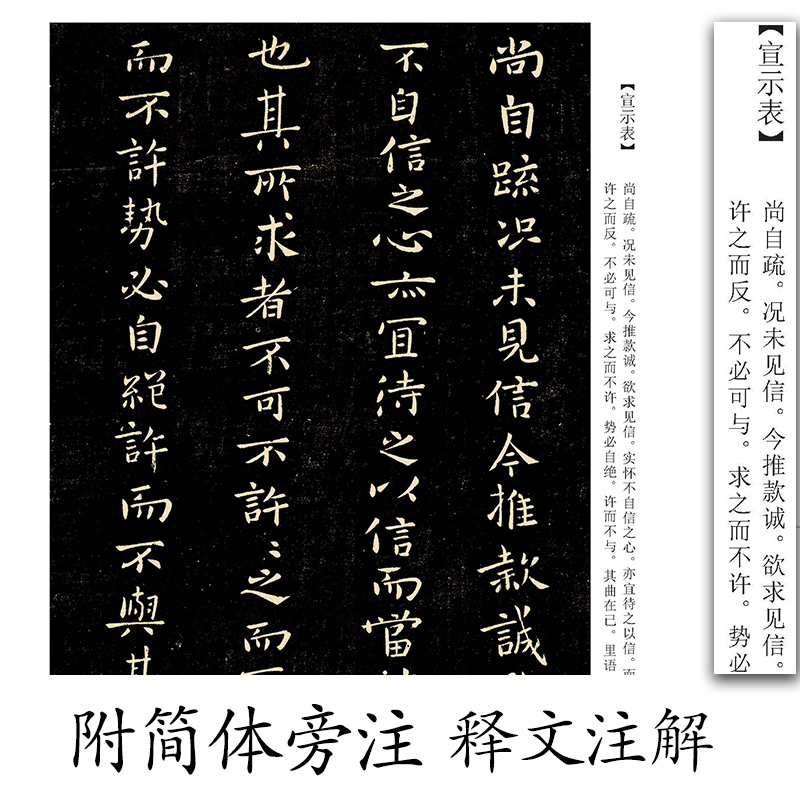 尚自疏況未見信今推款誠
不自信之心亦宜待之以信而當
也其所求者不可不許〻之而
而不許勢必自絕許而不與其
【宣示表】
尚自疏。况未见信。今推款诚。欲求见信。实怀不自信之心。亦宜待之以信。而
许之而反。不必可与。求之而不许。势必自绝。许而不与。其曲在己。里语
【宣示表】
尚自疏。况未见信。今推款诚。欲求见信。
许之而反。不必可与。求之而不许。势必
附简体旁注 释文注解